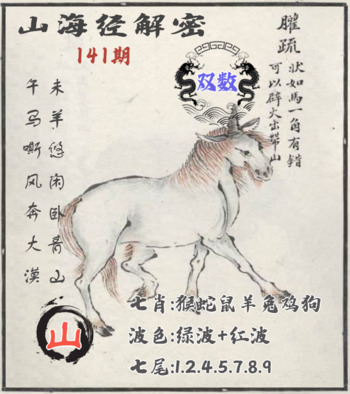 山海经解密
141期
双数
䑏疏
状如馬一角有错
可以辟火出带山
未羊悠闲卧青山
午马嘶风奔大漠
山
七肖:猴蛇鼠羊兔鸡狗
波色:绿波+红波
七尾:1.2.4.5.7.8.9